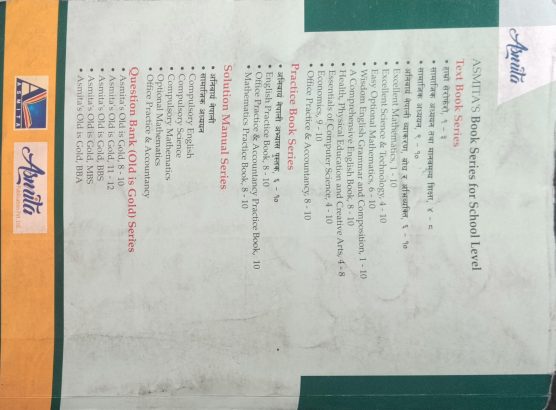 Asmita
ASMITA'S Book Series for School Level
Text Book Series
• हाम्रो सेरोफेरो, १ - ३
• सामाजिक अध्ययन तथा मानवमूल्य शिक्षा, ४ - ८
• सामाजिक अध्ययन, ९ - १०
• अनिवार्य नेपाली व्याकरण, बोध र अभिव्यक्ति, ९ - १०
• Excellent Mathematics, 1 - 10
• Excellent Science & Technology, 4 - 10
• Easy Optional Mathematics, 6 - 10
• Wisdom English Grammar and Composition, 1 - 10
• A Comprehensive English Book, 8 - 10
• Health, Physical Education and Creative Arts, 4 - 8
• Essentials of Computer Science, 4 - 10
• Economics, 9 - 10
• Office Practice & Accountancy, 8 - 10
Practice Book Series
• अनिवार्य नेपाली अभ्यास पुस्तक, ९ - १०
• English Practice Book, 8 - 10
• Office Practice & Accountancy Practice Book, 10
• Mathematics Practice Book, 8 - 10
Solution Manual Series
• अनिवार्य नेपाली
• सामाजिक अध्ययन
• Compulsory English
• Compulsory Science
• Compulsory Mathematics
• Optional Mathematics
• Office Practice & Accountancy
Question Bank (Old is Gold) Series
• Asmita's Old is Gold, 8 - 10
• Asmita's Old is Gold, 11 - 12
• Asmita's Old is Gold, BBS
• Asmita's Old is Gold, MBS
• Asmita's Old is Gold, BBA
ASMITA
Asmita